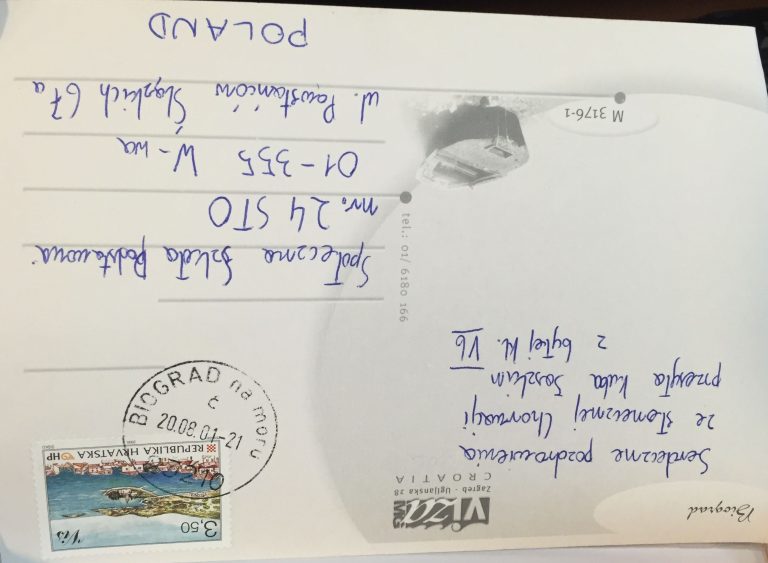 Biograd
Viza
MG
Zagreb - Ugljanska 28
CROATIA
Serdeczne pozdrowienia
ze słonecznej Chorwacji
przesyła Kuba
z byłej kl. VIb
tel.: 01/ 6180 166
M 3176-1
3,50
Vis
REPUBLIKA HRVATSKA
HP
BIOGRAD na moru
č
20.08.01-21
23210
Społeczna Szkoła Podstawowa
nr. 24 STO
01-355 W-wa
ul. Powstańców Śląskich 67a
POLAND